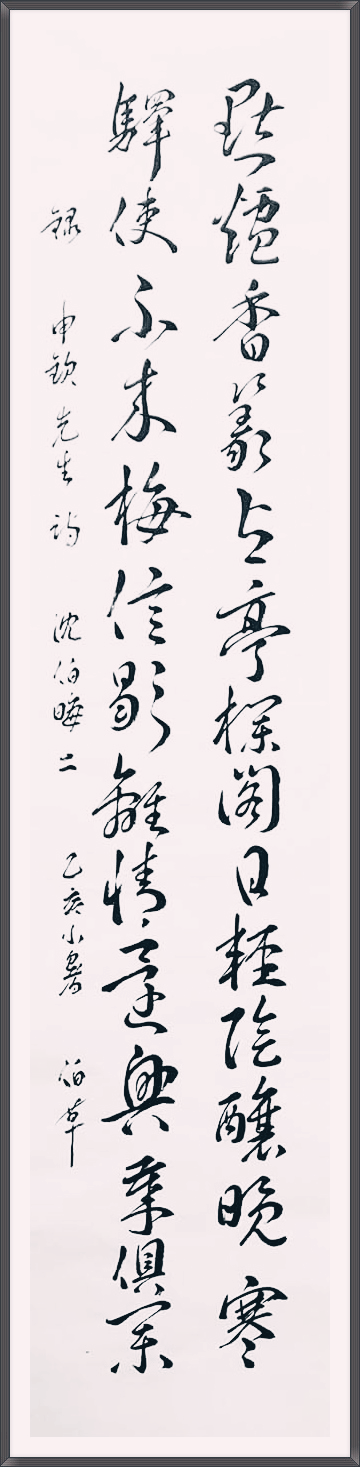 獸爐香篆上亭欄閣日輕陰釀晚寒
驛使不來梅信歇離情還與歲俱闌
錄 申欽先生詩 沈伯晦二 乙亥小暑 伯草